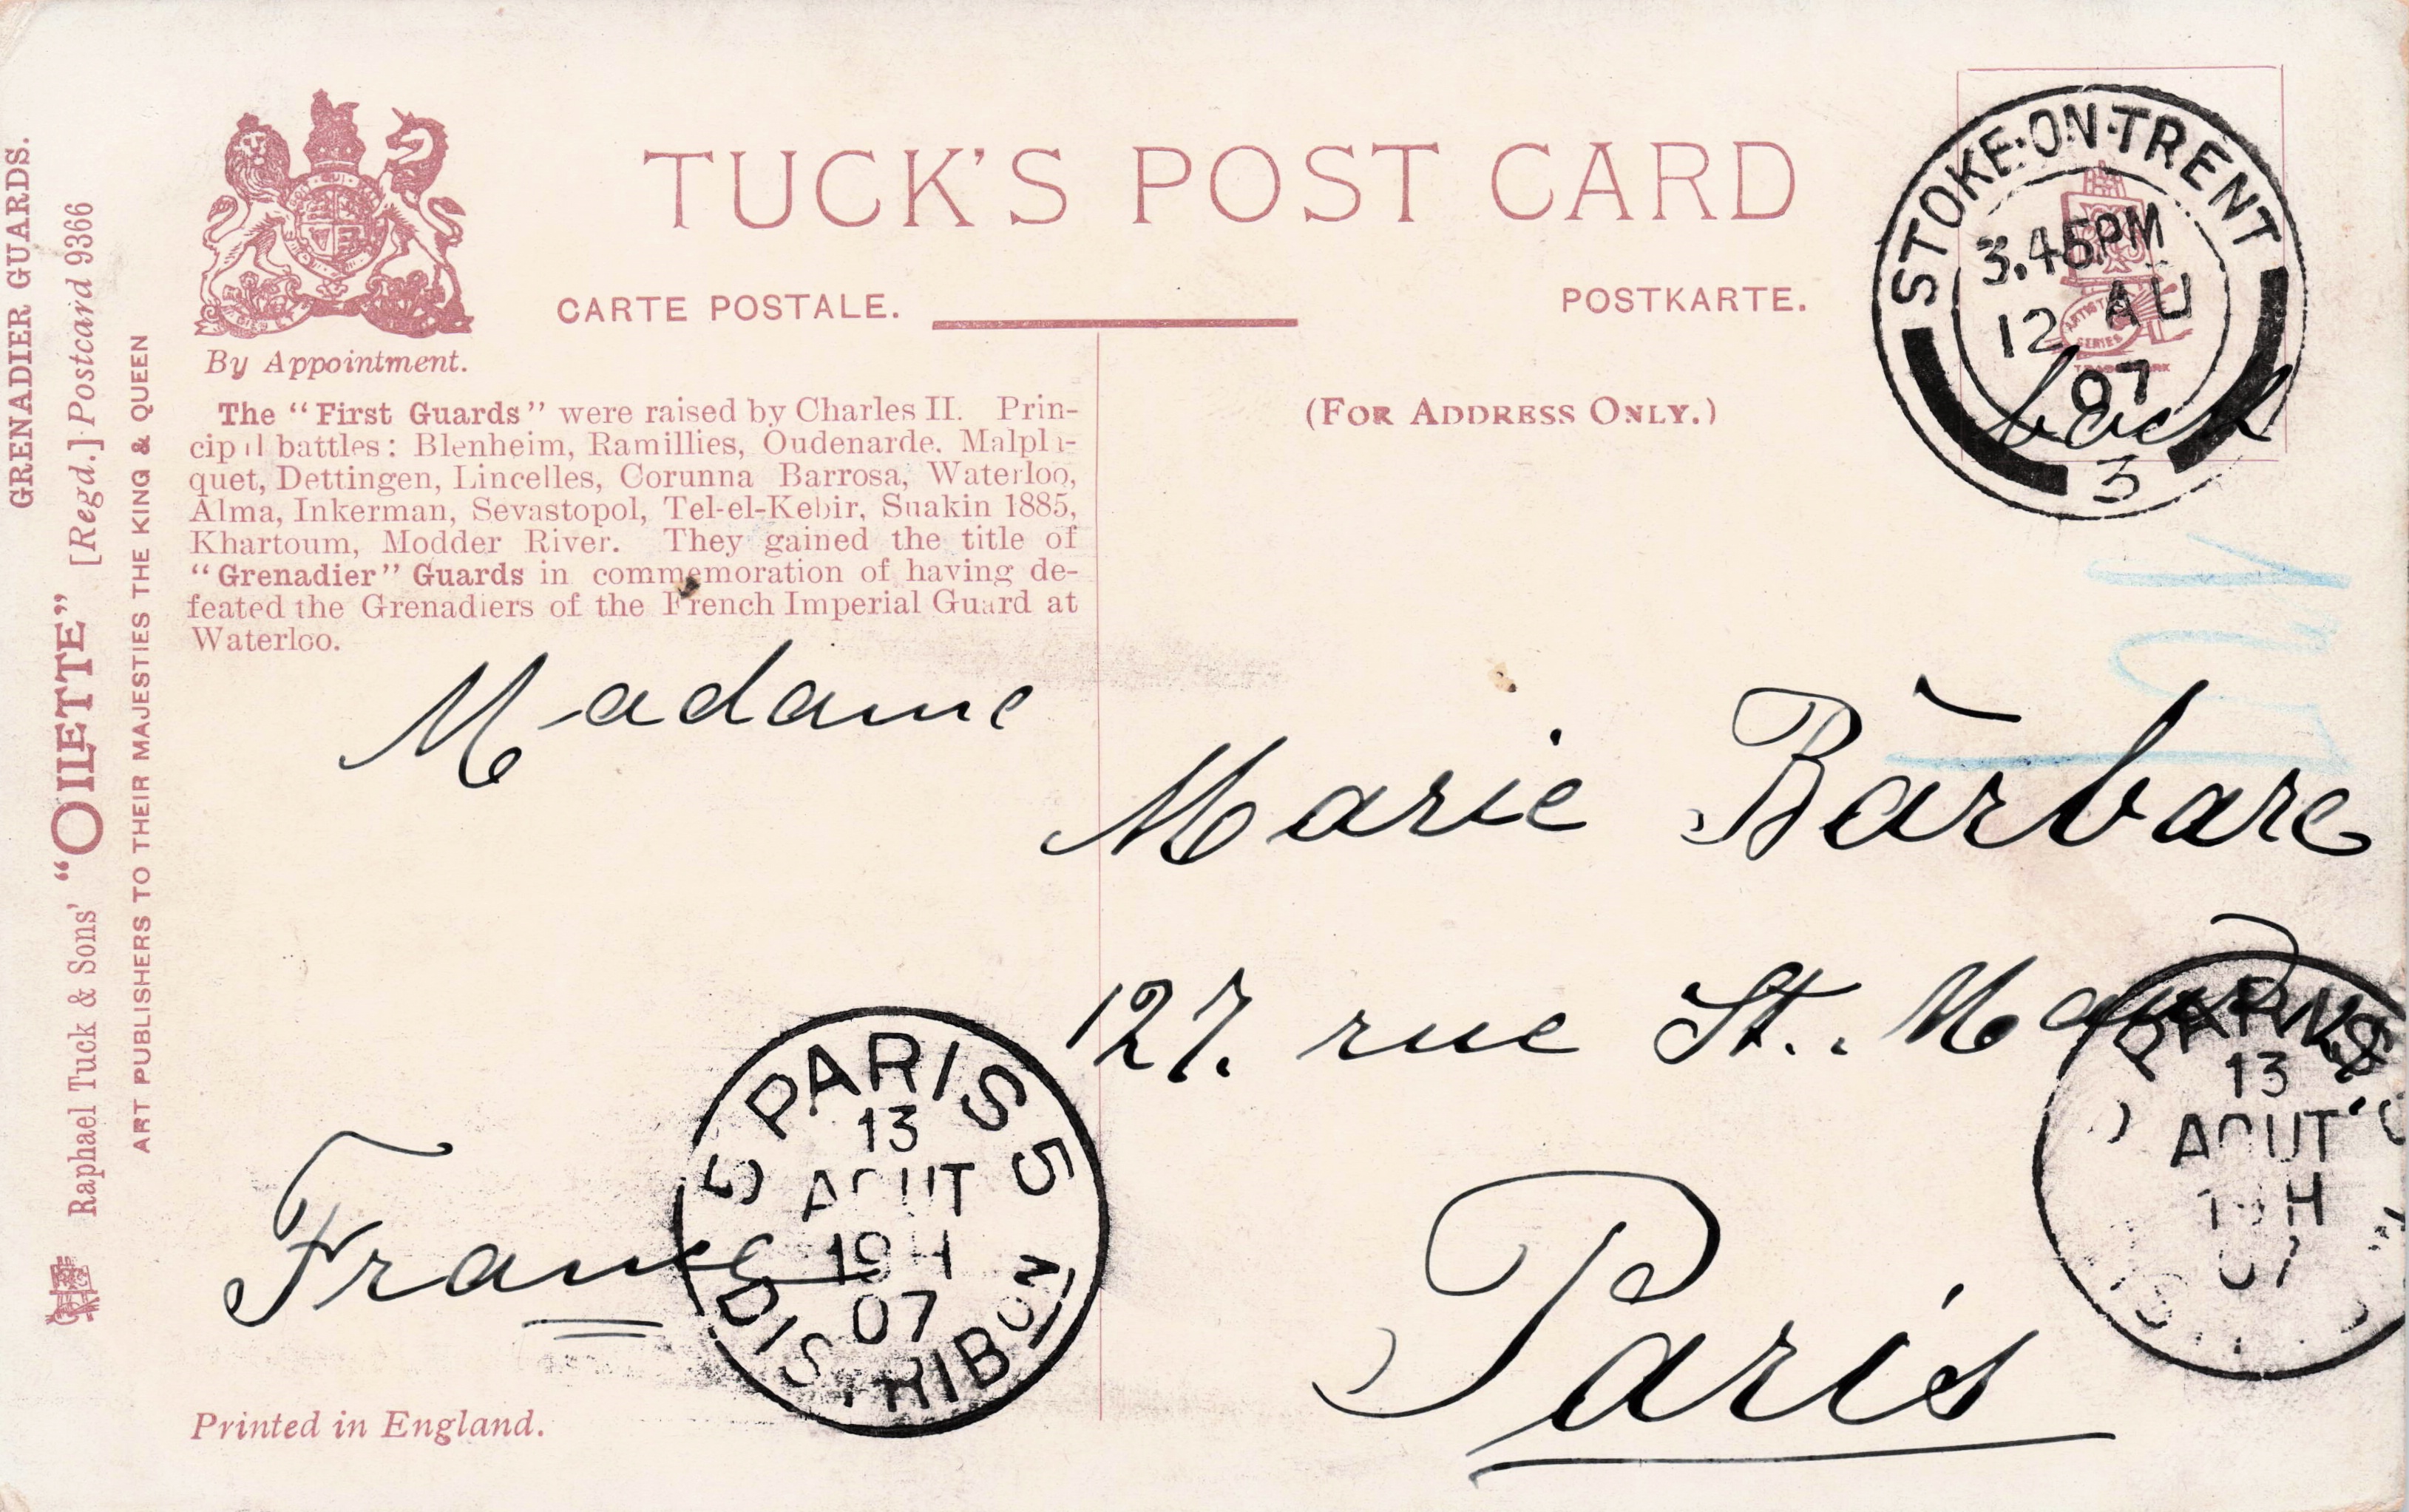 GRENADIER GUARDS.
Raphael Tuck & Sons' "OILETTE" [Regd.] Postcard 9366
ART PUBLISHERS TO THEIR MAJESTIES THE KING & QUEEN
TUCK'S POST CARD
CARTE POSTALE.
POSTKARTE.
By Appointment.
(FOR ADDRESS ONLY.)
The "First Guards" were raised by Charles II. Prin-
cipal battles: Blenheim, Ramillies, Oudenarde, Malpla-
quet, Dettingen, Lincelles, Corunna Barrosa, Waterloo,
Alma, Inkerman, Sevastopol, Tel-el-Kebir, Suakin 1885,
Khartoum, Modder River. They gained the title of
"Grenadier" Guards in commemoration of having de-
feated the Grenadiers of the French Imperial Guard at
Waterloo.
STOKE·ON·TRENT
3.45PM
12 AU
07
3
back
ARTISTIC
SERIES
Madame
Marie Barbare
127. rue St..
Paris
France
PARIS 5
13
AOUT
19H
07
DISTRIBUTION
PARIS
13
AOUT
07
Printed in England.